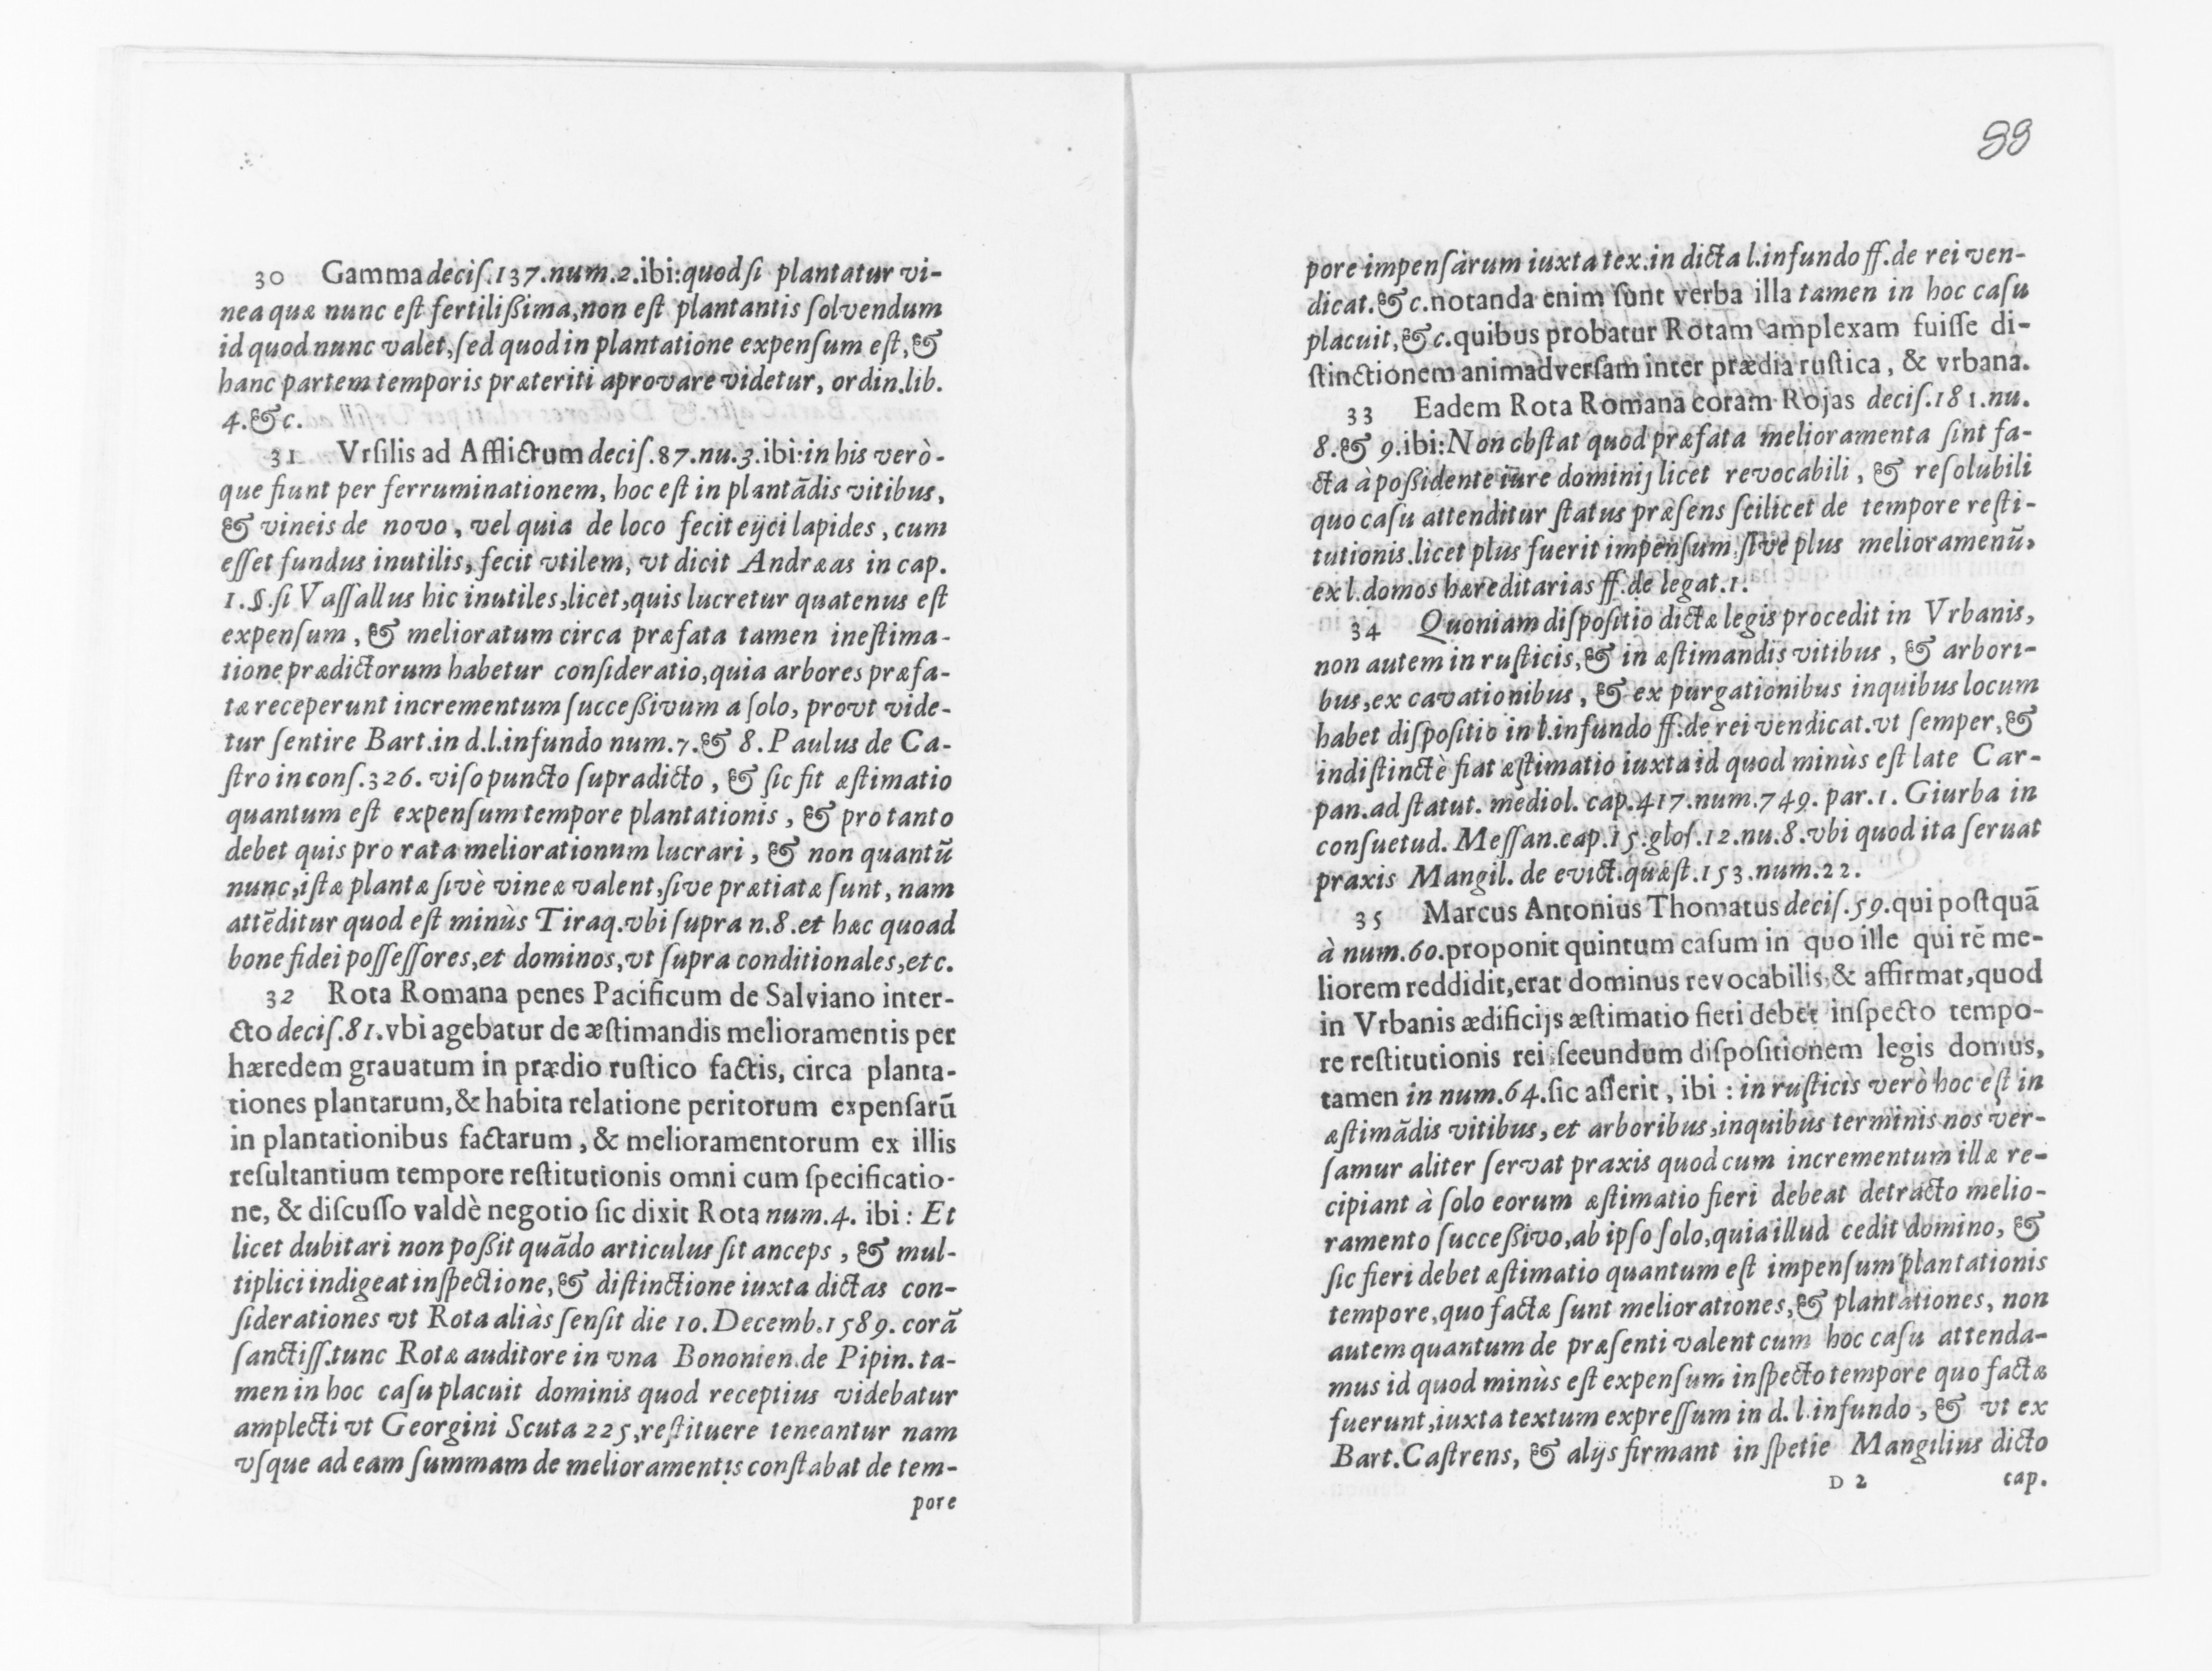 30 Gamma deciſ.137.num.2.ibi:quod ſi plantatur vi-
nea quæ nunc eſt fertilißima,non eſt plantantis ſolvendum
id quod nunc valet,ſed quod in plantatione expenſum eſt,&
hanc partem temporis præteriti aprovare videtur, ordin.lib.
4.&c.
31 Vrſilis ad Afflictum deciſ.87.nu.3.ibi:in his verò-
que fiunt per ferruminationem, hoc eſt in plantãdis vitibus,
& vineis de novo, vel quia de loco fecit eijci lapides, cum
eſſet fundus inutilis, fecit vtilem, vt dicit Andræas in cap.
1.§.ſi Vaſſallus hic inutiles,licèt,quis lucretur quatenus eſt
expenſum, & melioratum circa præfata tamen ineſtima-
tione prædictorum habetur conſideratio,quia arbores præfa-
tæ receperunt incrementum ſucceßivum a ſolo, provt vide-
tur ſentire Bart.in d.l.infundo num.7.& 8.Paulus de Ca-
ſtro in conſ.326. viſo puncto ſupradicto, & ſic fit æſtimatio
quantum eſt expenſum tempore plantationis, & pro tanto
debet quis pro rata meliorationum lucrari, & non quantũ
nunc,iſtæ plantæ ſivè vineæ valent,ſive prætiatæ ſunt, nam
attẽditur quod eſt minùs Tiraq.vbi ſupra n.8.et hæc quoad
bone fidei poſſeſſores,et dominos,vt ſupra conditionales,etc.
32 Rota Romana penes Pacificum de Salviano inter-
cto deciſ.81.vbi agebatur de æſtimandis melioramentis per
hæredem grauatum in prædio ruſtico factis, circa planta-
tiones plantarum,& habita relatione peritorum expenſarũ
in plantationibus factarum, & melioramentorum ex illis
reſultantium tempore reſtitutionis omni cum ſpecificatio-
ne, & diſcuſſo valdè negotio ſic dixit Rota num.4. ibi: Et
licet dubitari non poßit quãdo articulus ſit anceps, & mul-
tiplici indigeat inſpectione,& diſtinctione iuxta dictas con-
ſiderationes vt Rota aliàs ſenſit die 10.Decemb.1589. corã
ſanctiſſ.tunc Rotæ auditore in vna Bononien.de Pipin. ta-
men in hoc caſu placuit dominis quod receptius videbatur
amplecti vt Georgini Scuta 225,reſtituere teneantur nam
vſque ad eam ſummam de melioramentis conſtabat de tem-
pore
88
pore impenſarum iuxta tex.in dicta l.infundo ff.de rei ven-
dicat.&c.notanda enim ſunt verba illa tamen in hoc caſu
placuit,&c.quibus probatur Rotam amplexam fuiſſe di-
ſtinctionem animadverſam inter prædia ruſtica, & vrbana.
33 Eadem Rota Romana coram Rojas deciſ.181.nu.
8.& 9.ibi:Non obſtat quod præfata melioramenta ſint fa-
cta à poßidente iure dominij licet revocabili, & reſolubili
quo caſu attenditur ſtatus præſens ſcilicet de tempore reſti-
tutionis.licet plus fuerit impenſum ſive plus melioramenũ,
ex l.domos hæreditarias ff.de legat.1.
34 Quoniam diſpoſitio dictæ legis procedit in Vrbanis,
non autem in ruſticis,& in æſtimandis vitibus, & arbori-
bus,ex cavationibus, & ex purgationibus inquibus locum
habet diſpoſitio in l.infundo ff.de rei vendicat.vt ſemper,&
indiſtinctè fiat æſtimatio iuxta id quod minùs eſt late Car-
pan.ad ſtatut. mediol. cap.417.num.749. par.1. Giurba in
conſuetud. Meſſan.cap.15.gloſ.12.nu.8.vbi quod ita ſeruat
praxis Mangil. de evict.quæſt.153.num.22.
35 Marcus Antonius Thomatus deciſ.59.qui poſtquã
à num.60.proponit quintum caſum in quo ille qui rẽ me-
liorem reddidit,erat dominus revocabilis,& affirmat,quod
in Vrbanis ædificijs æſtimatio fieri debet inſpecto tempo-
re reſtitutionis rei ſecundum diſpoſitionem legis domus,
tamen in num.64.ſic aſſerit, ibi: in ruſticis verò hoc eſt in
æſtimãdis vitibus, et arboribus,inquibus terminis nos ver-
ſamur aliter ſervat praxis quod cum incrementum illæ re-
cipiant à ſolo eorum æſtimatio fieri debeat detracto melio-
ramento ſucceßivo,ab ipſo ſolo,quia illud cedit domino, &
ſic fieri debet æſtimatio quantum eſt impenſum plantationis
tempore,quo factæ ſunt meliorationes,& plantationes, non
autem quantum de præſenti valent cum hoc caſu attenda-
mus id quod minùs eſt expenſum inſpecto tempore quo factæ
fuerunt,iuxta textum expreſſum in d.l.infundo, & vt ex
Bart.Caſtrens, & alijs firmant in ſpetie Mangilius dicto
D 2 cap.